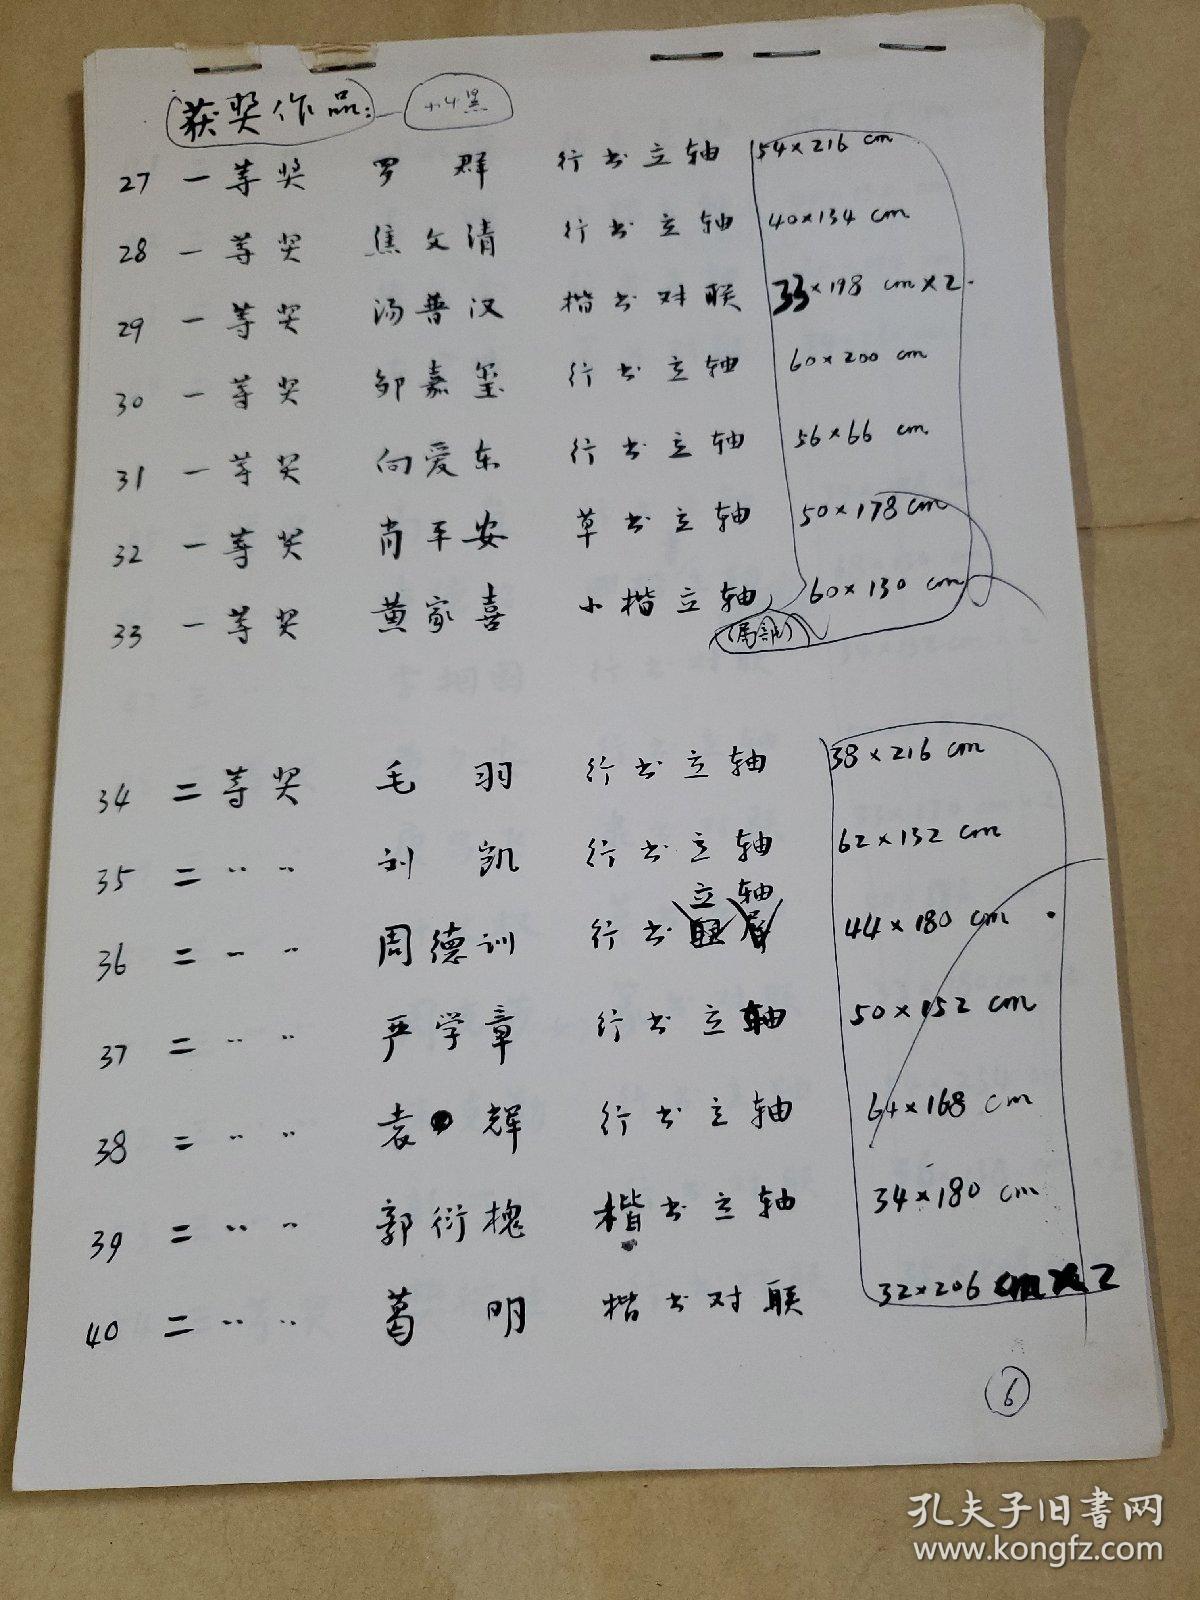 获奖作品: 小4黑
27 一等奖 罗群 行书立轴 54×216 cm
28 一等奖 焦文清 行书立轴 40×134 cm
29 一等奖 汤普汉 楷书对联 33×198 cm×2.
30 一等奖 邹嘉玺 行书立轴 60×200 cm
31 一等奖 向爱东 行书立轴 56×66 cm
32 一等奖 肖平安 草书立轴 50×178 cm
33 一等奖 黄家喜 小楷立轴 60×130 cm
(局部)
34 二等奖 毛羽 行书立轴 38×216 cm
35 二 〃 〃 刘凯 行书立轴 62×132 cm
立轴
36 二 〃 〃 周德训 行书 44×180 cm
37 二 〃 〃 严学章 行书立轴 50×152 cm
38 二 〃 〃 袁辉 行书立轴 64×168 cm
39 二 〃 〃 郭衍槐 楷书立轴 34×180 cm
40 二 〃 〃 葛明 楷书对联 32×206 cm×2
6
孔夫子旧书网
www.kongfz.com